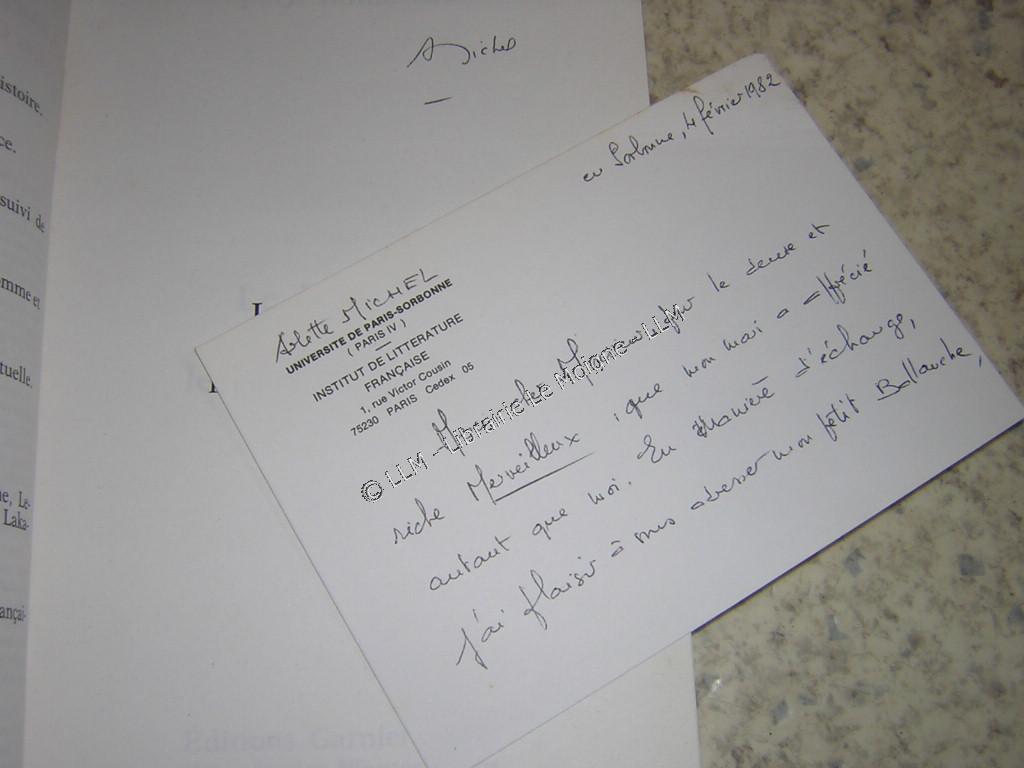 istoire.
ce.
suivi de
emme et
tuelle.
ne, Lé-
Laka-
ançai-
Editions Garnier
en Sorbonne, 4 février 1982
Arlette MICHEL
UNIVERSITE DE PARIS-SORBONNE
( PARIS IV )
INSTITUT DE LITTERATURE
FRANÇAISE
1, rue Victor Cousin
75230 PARIS Cedex 05
© LLM - Librairie Le Moigne - LLM
pour le dense et
riche Merveilleux, que mon mari a apprécié
autant que moi. En manière d'échange,
j'ai plaisir à vous adresser mon petit Ballanche,